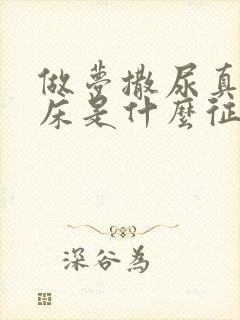 做夢撒尿真
床是什麼征
深谷為